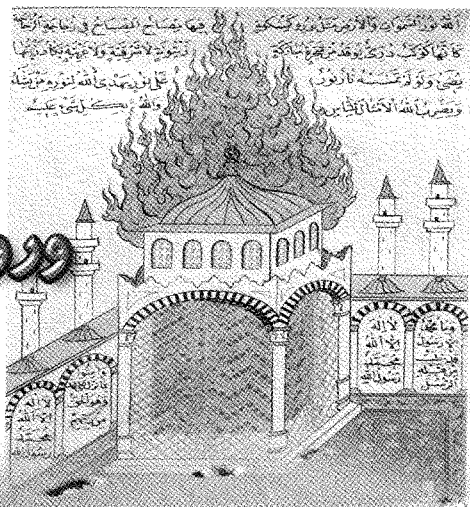 الله نور السموات والارض مثل نوره كمشكوة فيها مصباح المصباح في زجاجة الزجاجة
كانها كوكب دري يوقد من شجرة مباركة زيتونة لا شرقية ولا غربية يكاد زيتها
يضئ ولو لم تمسسه نار نور على نور يهدى الله لنوره من يشاء
ويضرب الله الامثال للناس والله بكل شئ عليم
وما محمد
الا رسول
قد خلت
من قبله
الرسل
لا اله
الا الله
محمد
رسول الله
لا اله
الا الله
محمد
رسول الله